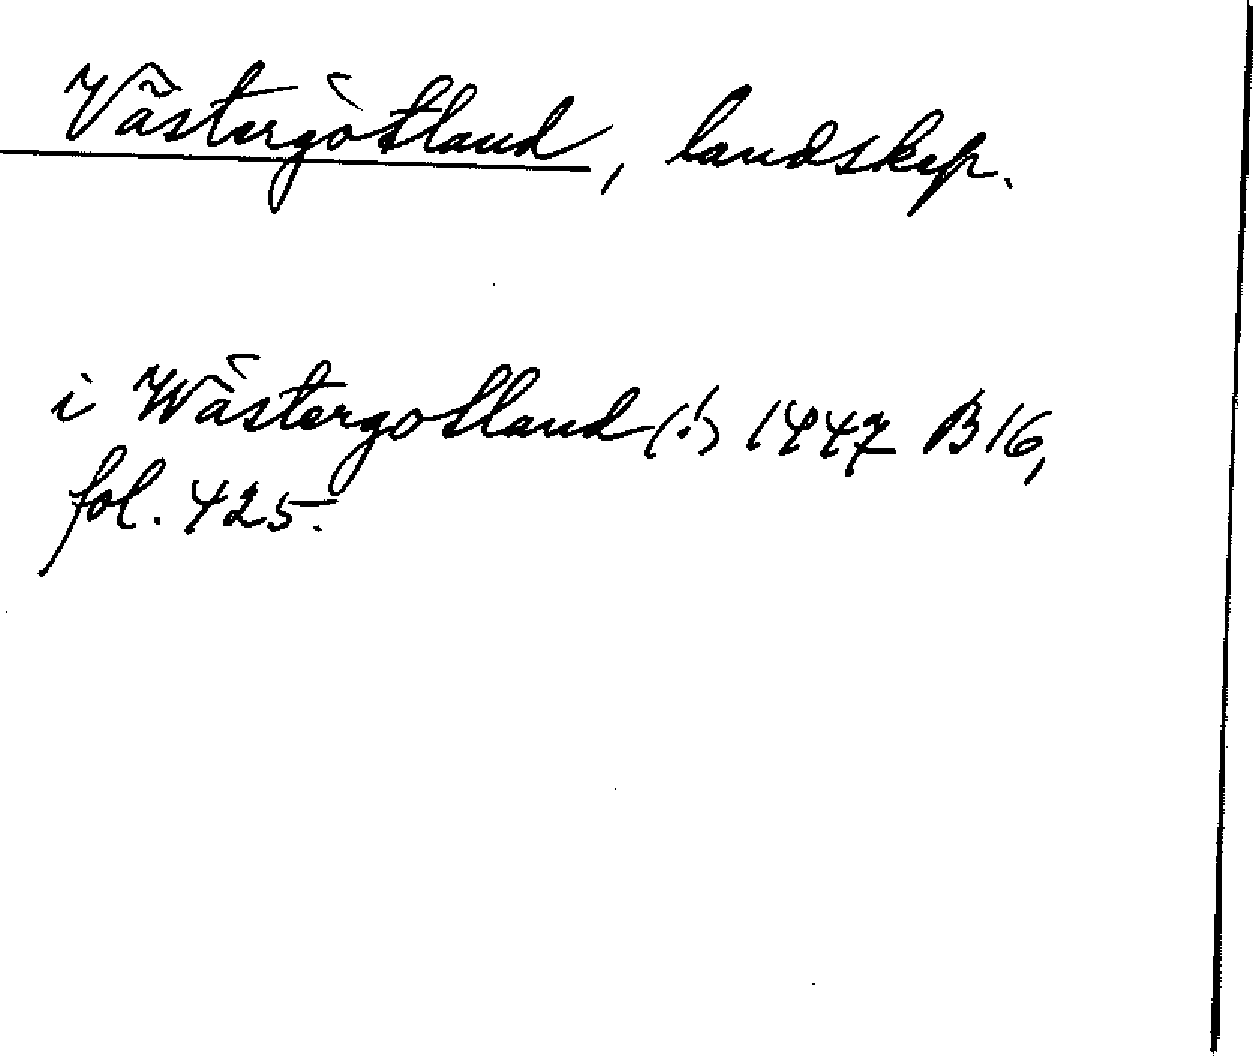 Västergötland, landskp.
i Wästergotland (!) 1447 B 16,
fol. 425.